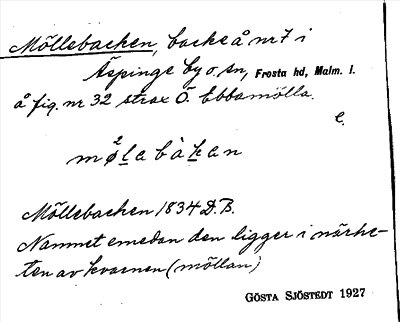 Möllebacken, backe å nr 7 i
Äspinge by o. sn, Frosta hd, Malm. l.
å fig. nr 32 strax Ö. Ebbamölla.
e.
2
møla bàkan
Möllebacken 1834 D.B.
Namnet emedan den ligger i närhe-
ten av kvarnen (möllan)
GÖSTA SJÖSTEDT 1927